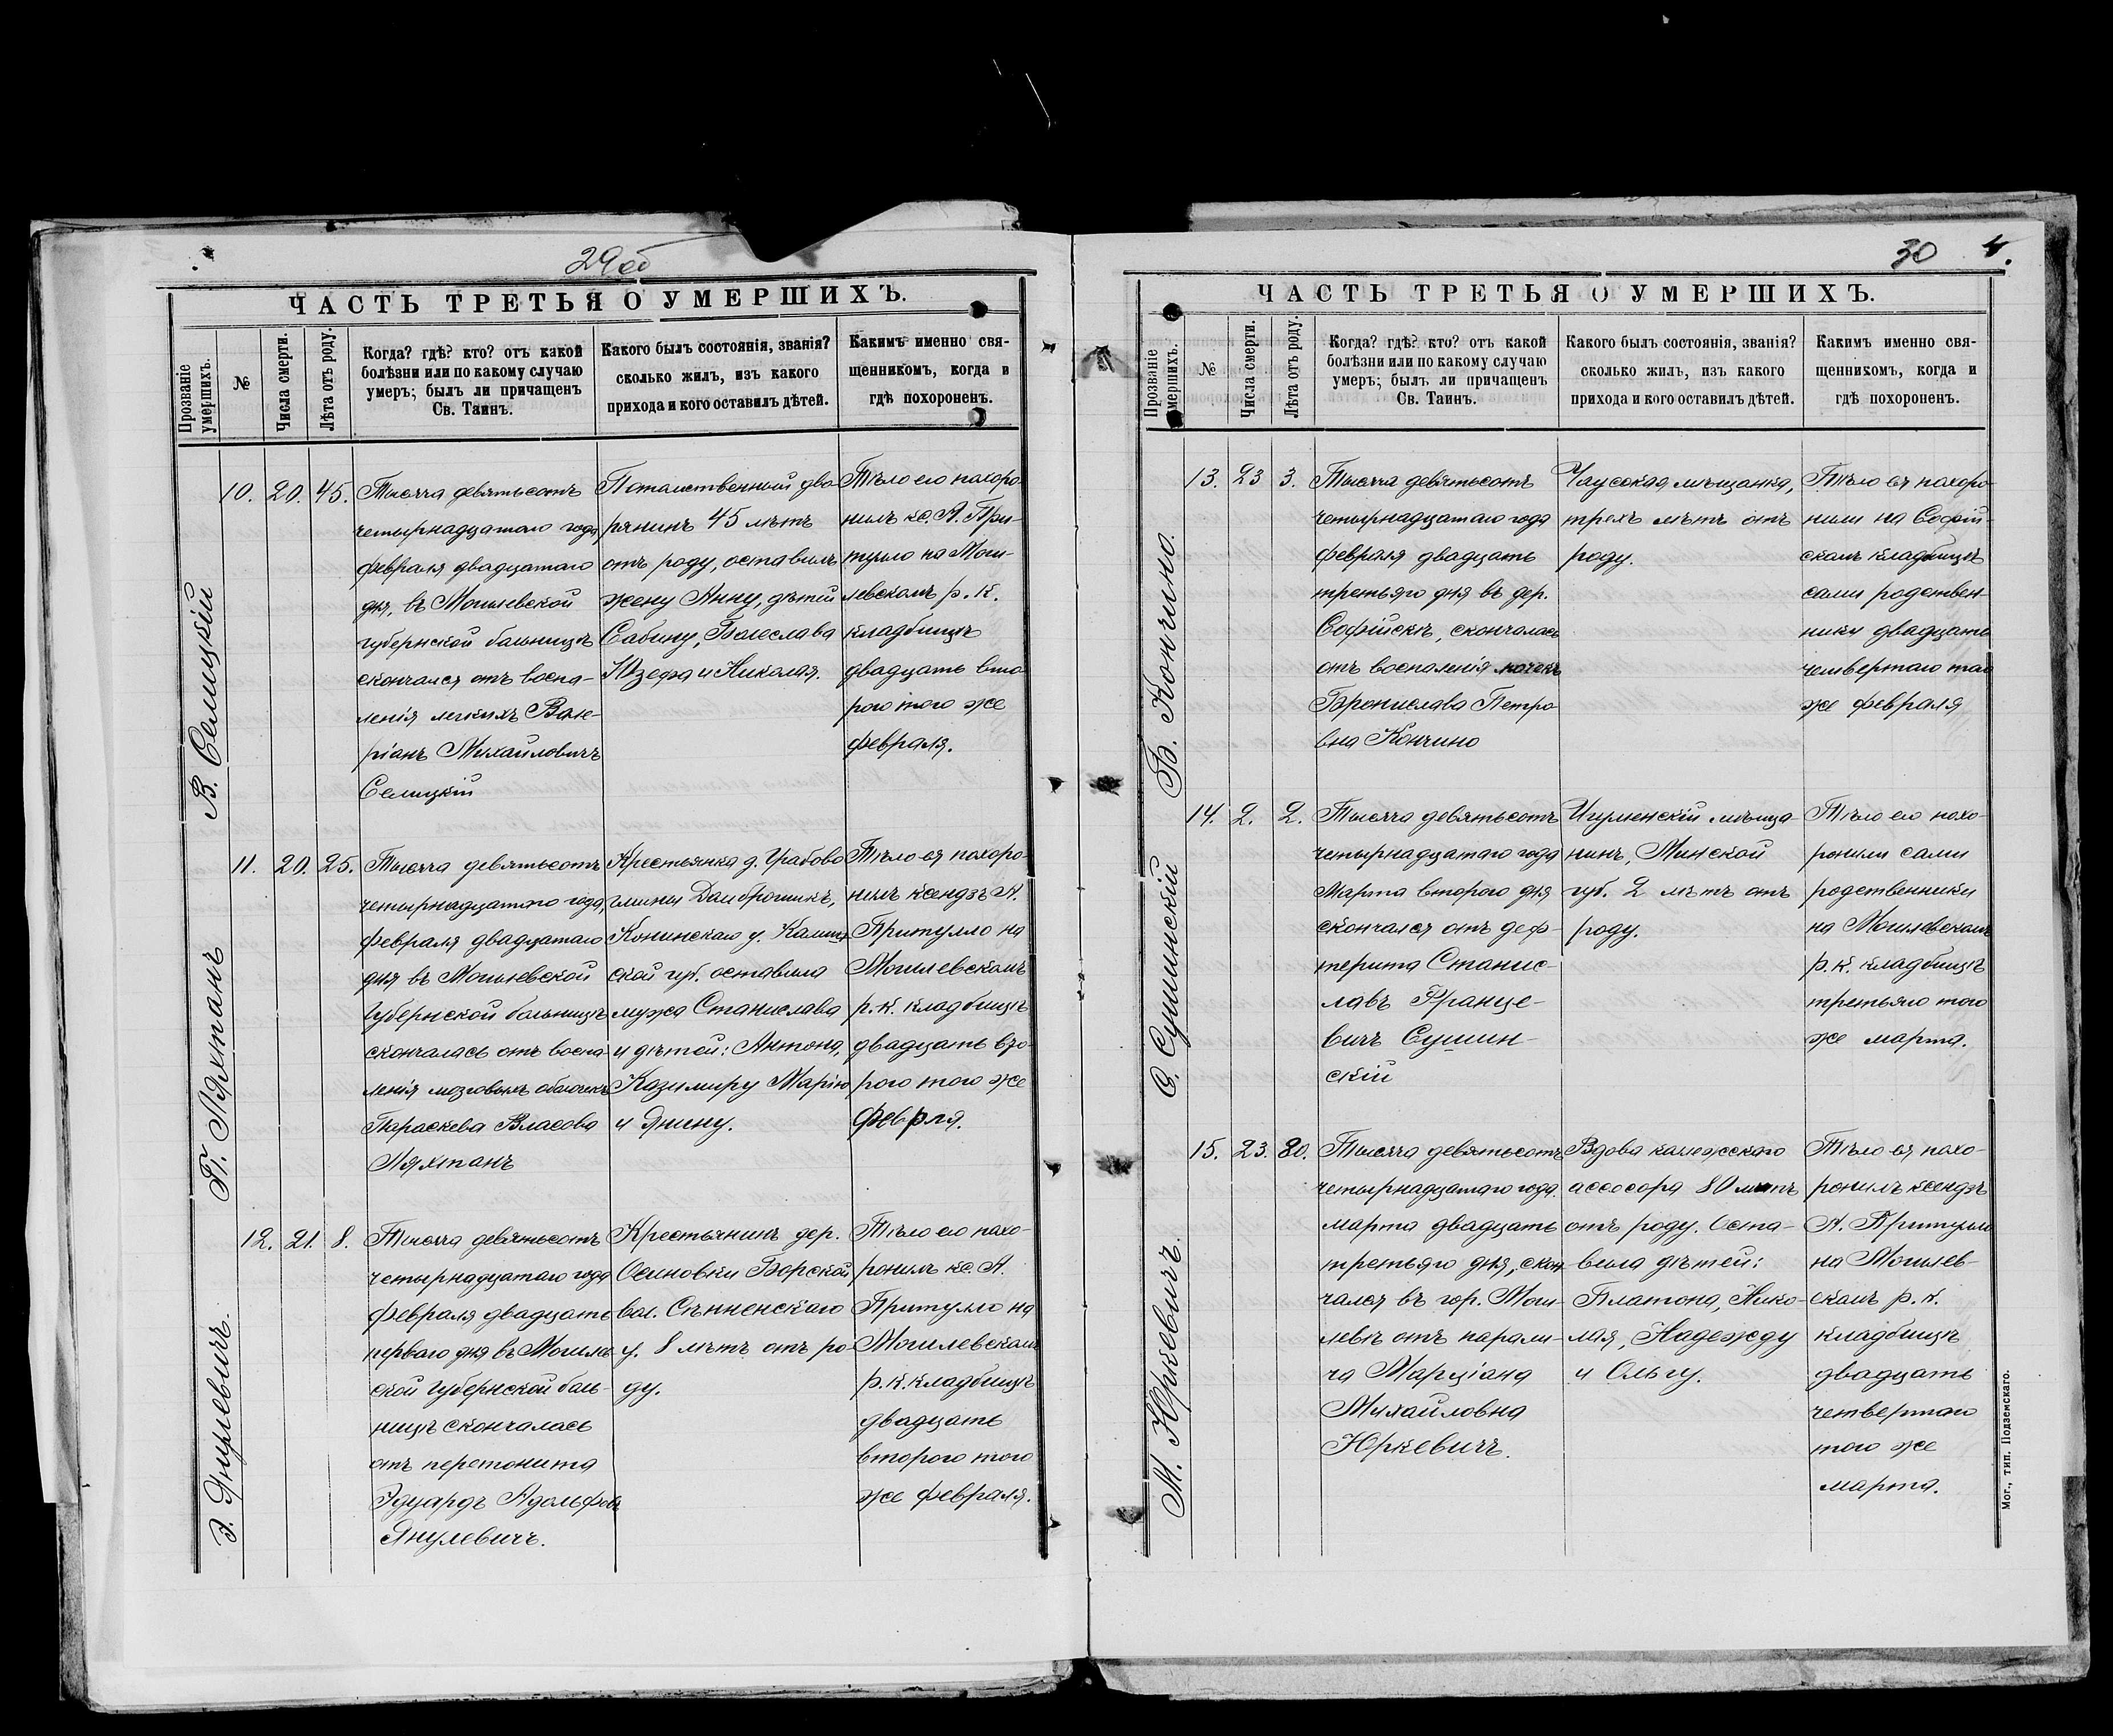 29об
ЧАСТЬ ТРЕТЬЯ О УМЕРШИХЪ.
Прозваніе умершихъ.
№
Числа смерти.
Лѣта отъ роду.
Когда? гдѣ? кто? отъ какой
болѣзни или по какому случаю
умеръ; былъ ли причащенъ
Св. Таинъ.
Какого былъ состоянія, званія?
сколько жилъ, изъ какого
прихода и кого оставилъ дѣтей.
Какимъ именно свя-
щенникомъ, когда и
гдѣ похороненъ.
В. Селицкій
10.
20.
45.
Тысяча девятьсотъ
четырнадцатаго года
февраля двадцатаго
дня, въ Могилевской
губернской больницѣ
скончался отъ воспа-
ленія легкихъ Вале-
ріанъ Михайловичъ
Селицкій
Потомственный дво-
рянинъ 45 лѣтъ
отъ роду, оставилъ
жену Анну, дѣтей
Сабину, Болеслава
Юзефа и Николая.
Тѣло его похоро-
нилъ кс. А. При-
тулло на Моги-
левскомъ р. к.
кладбищѣ
двадцать вто-
рого того же
февраля.
П. Ляхтанъ
11.
20.
25.
Тысяча девятьсотъ
четырнадцатого года,
февраля двадцатаго
дня въ Могилевской
Губернской больницѣ
скончалась отъ воспа-
ленія мозговыхъ оболочекъ
Параскева Власова
Ляхтанъ
Крестьянка д. Грабово
гмины Домброшинъ,
Конинскаго у. Калиш-
ской губ. оставила
мужа Станислава
и дѣтей: Антона,
Казимиру Марію
и Янину.
Тѣло ея похоро-
нилъ ксендзъ А.
Притулло на
Могилевскомъ
р. к. кладбищѣ
двадцать вто-
рого того же
феврля.
Э. Янулевичъ.
12.
21.
8.
Тысяча девятьсотъ
четырнадцатаго года
февраля двадцать
перваго дня въ Могилев-
ской Губернской боль-
ницѣ скончалась
отъ перетонита
Эдуардъ Адольфов.
Янулевичъ.
Крестьянинъ дер.
Осиновки Борской
вол. Сѣнненскаго
у. 8 лѣтъ отъ ро-
ду.
Тѣло его похо-
ронилъ кс. А.
Притулло на
Могилевскомъ
р. к. кладбищѣ
двадцать
второго того
же февраля.
30
4.
ЧАСТЬ ТРЕТЬЯ О УМЕРШИХЪ.
Прозваніе умершихъ.
№
Числа смерти.
Лѣта отъ роду.
Когда? гдѣ? кто? отъ какой
болѣзни или по какому случаю
умеръ; былъ ли причащенъ
Св. Таинъ.
Какого былъ состоянія, званія?
сколько жилъ, изъ какого
прихода и кого оставилъ дѣтей.
Какимъ именно свя-
щенникомъ, когда и
гдѣ похороненъ.
Б. Кончино.
13.
23
3.
Тысяча девятьсотъ
четырнадцатаго года
февраля двадцать
третьяго дня въ дер.
Софійскѣ, скончалась
отъ воспаленія почекъ
Бронислава Петро-
вна Кончино
Чаусская мѣщанка,
трехъ лѣтъ отъ
роду.
Тѣло ея похоро-
нили на Софій-
скомъ кладбищѣ
сами родствен-
ники двадцать
четвертаго того
же февраля
С. Сушинскій
14.
2.
2.
Тысяча девятьсотъ
четырнадцатаго года
Марта второго дня
скончался отъ деф-
терита Станис-
лавъ Францe-
вичъ Сушин-
скій
Игуменскій мѣща-
нинъ, Минской
губ. 2 лѣтъ отъ
роду.
Тѣло его похо-
ронили сами
родственники
на Могилевскомъ
р. к. кладбищѣ
третьяго того
же марта.
М. Юркевичъ.
15.
23.
80.
Тысяча девятьсотъ
четырнадцатаго года.
марта двадцать
третьяго дня, скон-
чалея въ гор. Моги-
левѣ отъ парали-
ча Марціана
Михайловна
Юркевичъ.
Вдова колежскаго
ассесора 80 лѣтъ
отъ роду. Оста-
вила дѣтей:
Платона, Нико-
лая, Надежду
и Ольгу.
Тѣло ея похо-
ронилъ ксендзъ
А. Притулло
на Могилев-
скомъ р. к.
кладбищѣ
двадцать
четвертаго
того же
марта.
Мог., тип. Подземскаго.